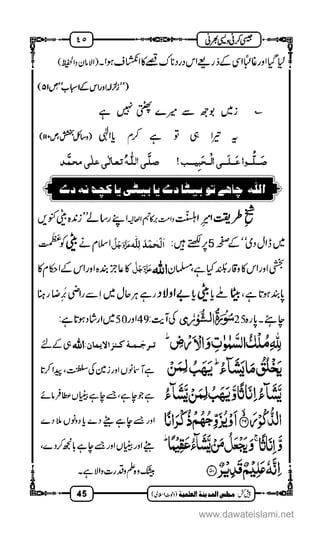 جیسی کرنی ویسی بھرنی
٤٥
لیا گیا اور غالباً اسی کے ذریعے اس دردناک قصے کا انکشاف ہوا۔ (الامان والحفیظ)
(’’زلزلہ اور اس کے اسباب‘‘ ص ۵۱)
زمیں بوجھ سے میرے پھٹتی نہیں ہے
یہ تیرا ہی تو ہے کرم یا الٰہی
صَلُّوا عَلَی الْحَبِیب! صلَّی اللّٰہُ تعالٰی علٰی محمَّد
اللہ چاہے تو بیٹا دے یا بیٹی یا کچھ نہ دے
شیخِ طریقت امیرِ اہلسنّت دامت برکاتہم العالیہ اپنے رسالے ’’زندہ بیٹی کنویں
میں ڈال دی‘‘ کے صفحے 5 پر لکھتے ہیں: اَلْحَمْدُ لِلّٰہ عَزَّوَجَلَّ اسلام نے بیٹی کو عظمت
بخشی اور اس کا وقار بلند کیا ہے، مسلمان اللہ عَزَّوَجَلَّ کا عاجز بندہ اور اس کے احکام کا
پابند ہوتا ہے، بیٹا ملے یا بیٹی یا بے اولاد رہے ہر حال میں اِسے راضی بَرِضا رہنا
چاہئے۔ پارہ 25 سُوْرَۃُ الشُّوْرٰی کی آیت: 49 اور 50 میں ارشاد ہوتا ہے:
لِلّٰهِ مُلْكُ السَّمٰوٰتِ وَالْاَرْضِ ؕ
یَخْلُقُ مَا یَشَآءُ ؕ یَهَبُ لِمَنْ
یَّشَآءُ اِنَاثًا وَّیَهَبُ لِمَنْ یَّشَآءُ
الذُّكُوْرَ ﴿۴۹﴾ اَوْ یُزَوِّجُهُمْ ذُكْرَانًا
وَّاِنَاثًا ۚ وَیَجْعَلُ مَنْ یَّشَآءُ عَقِیْمًا ؕ
اِنَّهٗ عَلِیْمٌ قَدِیْرٌ ﴿۵۰﴾
ترجمۂ کنز الایمان: اللہ ہی کے لئے
ہے آسمانوں اور زمین کی سلطنت، پیدا کرتا
ہے جو چاہے، جسے چاہے بیٹیاں عطا فرمائے
اور جسے چاہے بیٹے دے یا دونوں ملا دے
بیٹے اور بیٹیاں اور جسے چاہے بانجھ کر دے،
بیشک وہ علم و قدرت والا ہے۔
45
مجلس المدینۃ العلمیۃ (دعوتِ اسلامی)
www.dawateislami.net